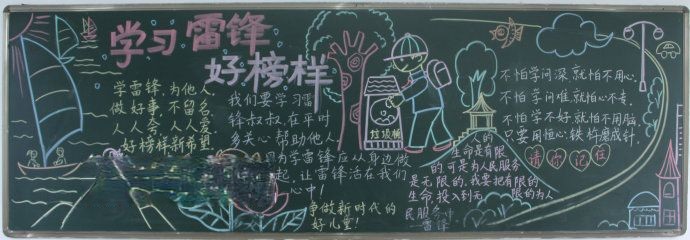 学习雷锋
好榜样
学雷锋,为他人
做好事 不留名
人人会 人人爱
好榜样新希望
我们要学习雷
锋叔叔,在平时
多关心 帮助他人
为学雷锋应从身边做
起,让雷锋活在我们
心中!
争做新时代的
好儿童!
垃圾桶
人的
生命是有限
的,可是为人民服务
是无限的,我要把有限的
生命,投入到无限的为人
民服务中
雷锋
不怕学问深,就怕不用心,
不怕学问难,就怕心不专,
不怕学不好,就怕不用脑,
只要用恒心,铁杵磨成针.
请你记住